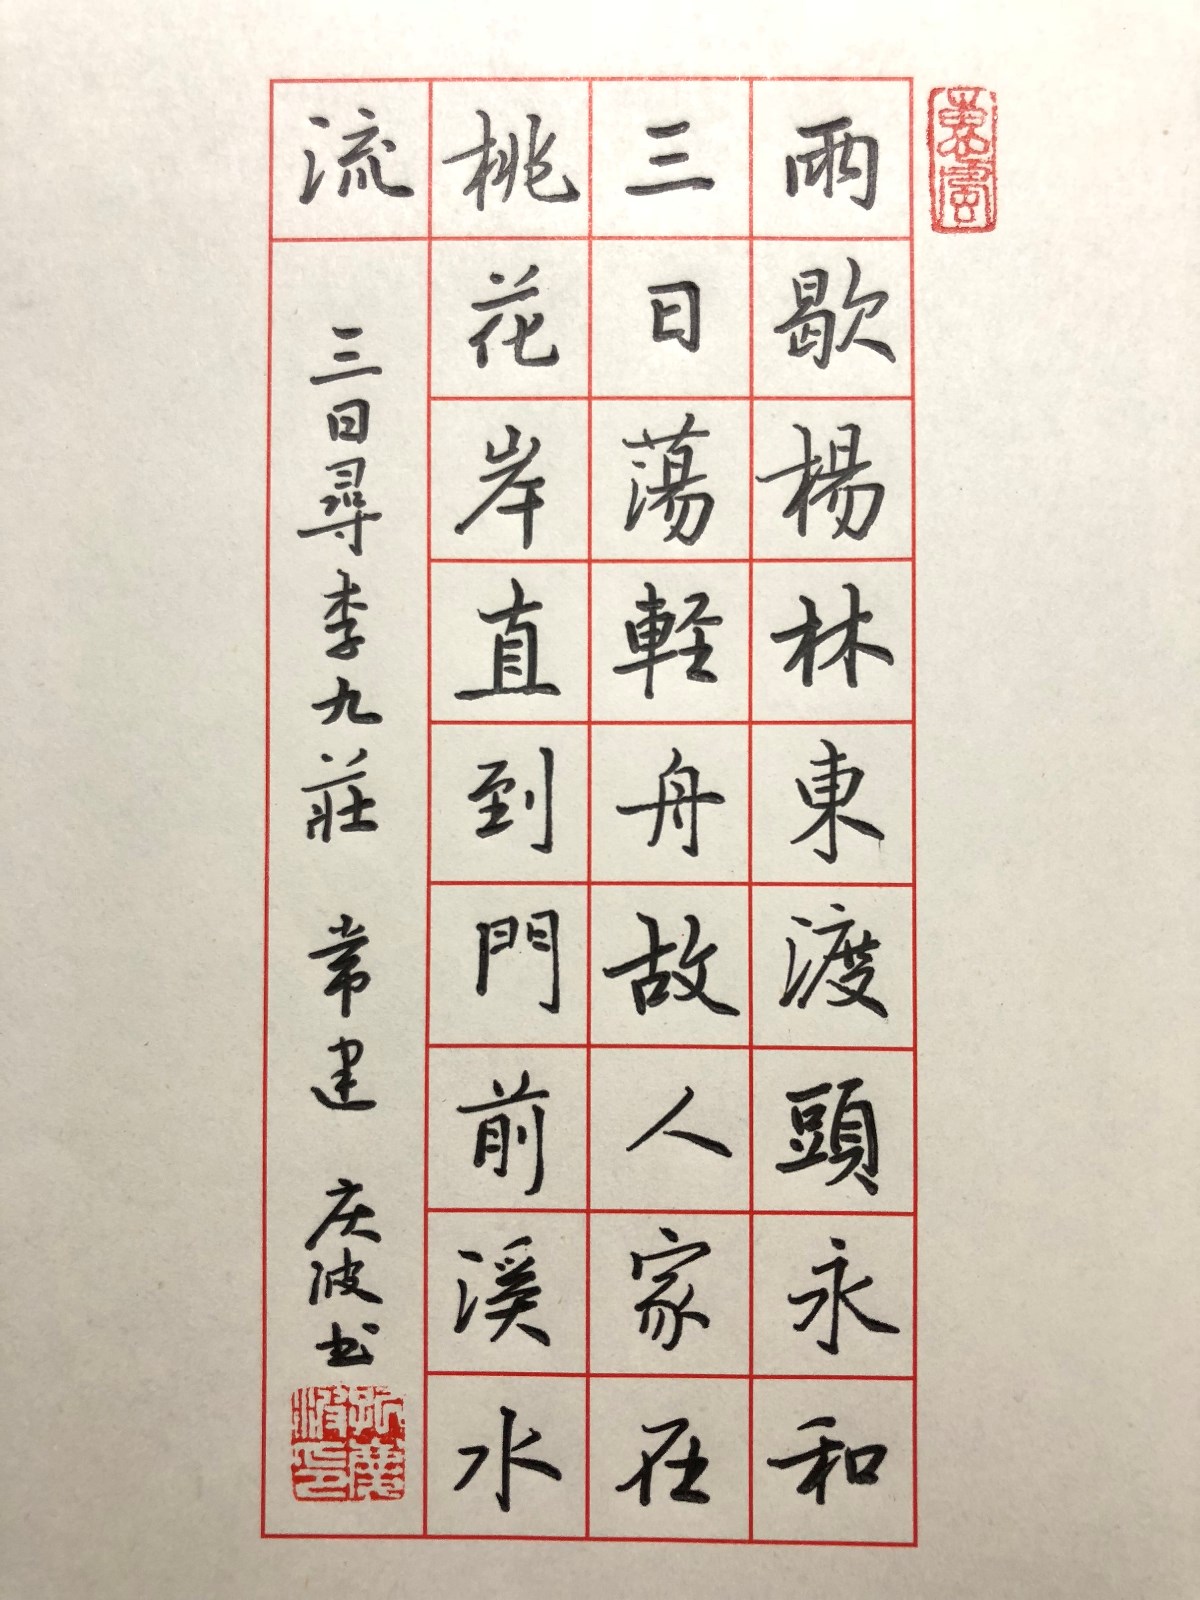 雨歇楊林東渡頭永和
三日蕩軽舟故人家在
桃花岸直到門前溪水
流
三日尋李九莊 常建 庆波书